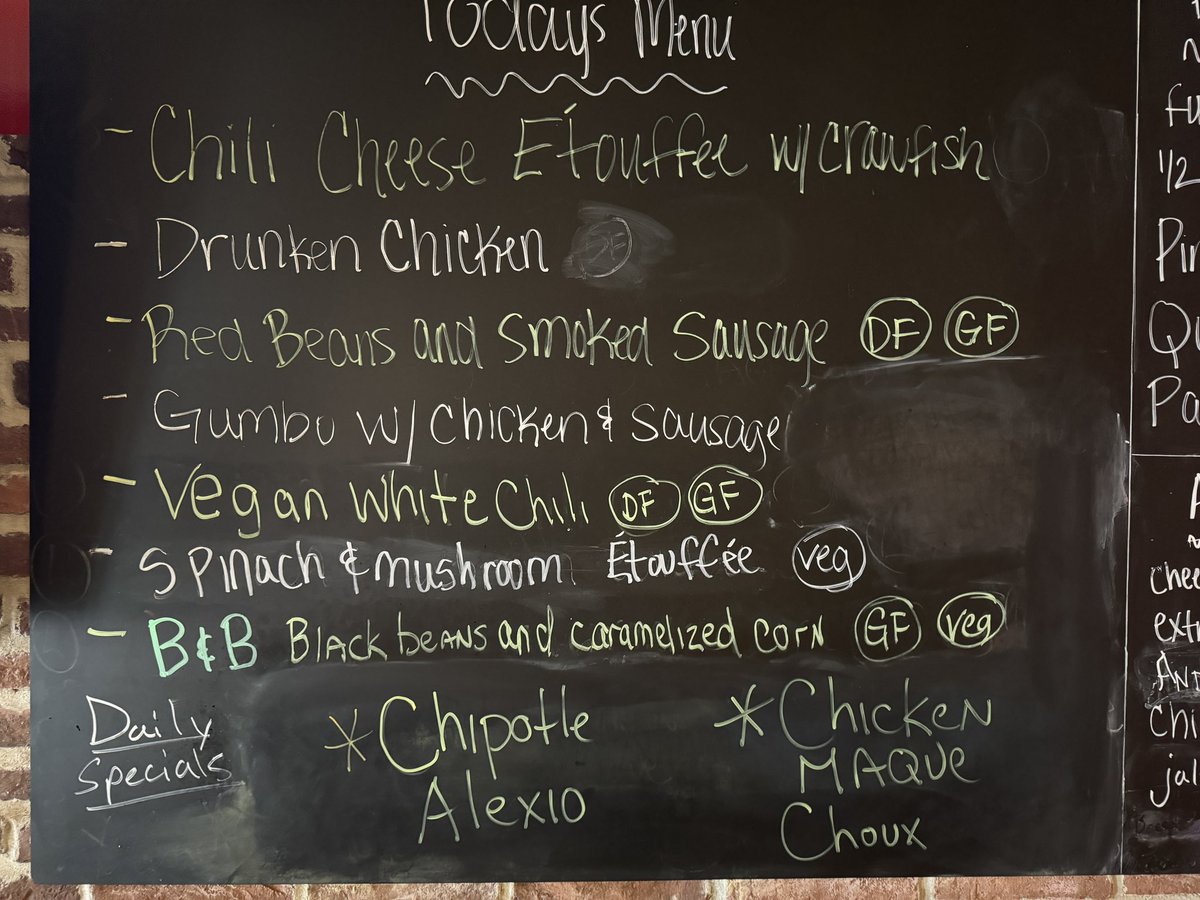 Todays Menu
- Chili Cheese Étouffee w/ crawfish
- Drunken Chicken DF
- Red Beans and Smoked Sausage DF GF
- Gumbo w/ chicken & sausage
- Vegan White Chili DF GF
- Spinach & mushroom Étouffée veg
- B&B Black beans and caramelized corn GF veg
Daily
Specials
* Chipotle
Alexio
* Chicken
MAQUE
Choux
1/2